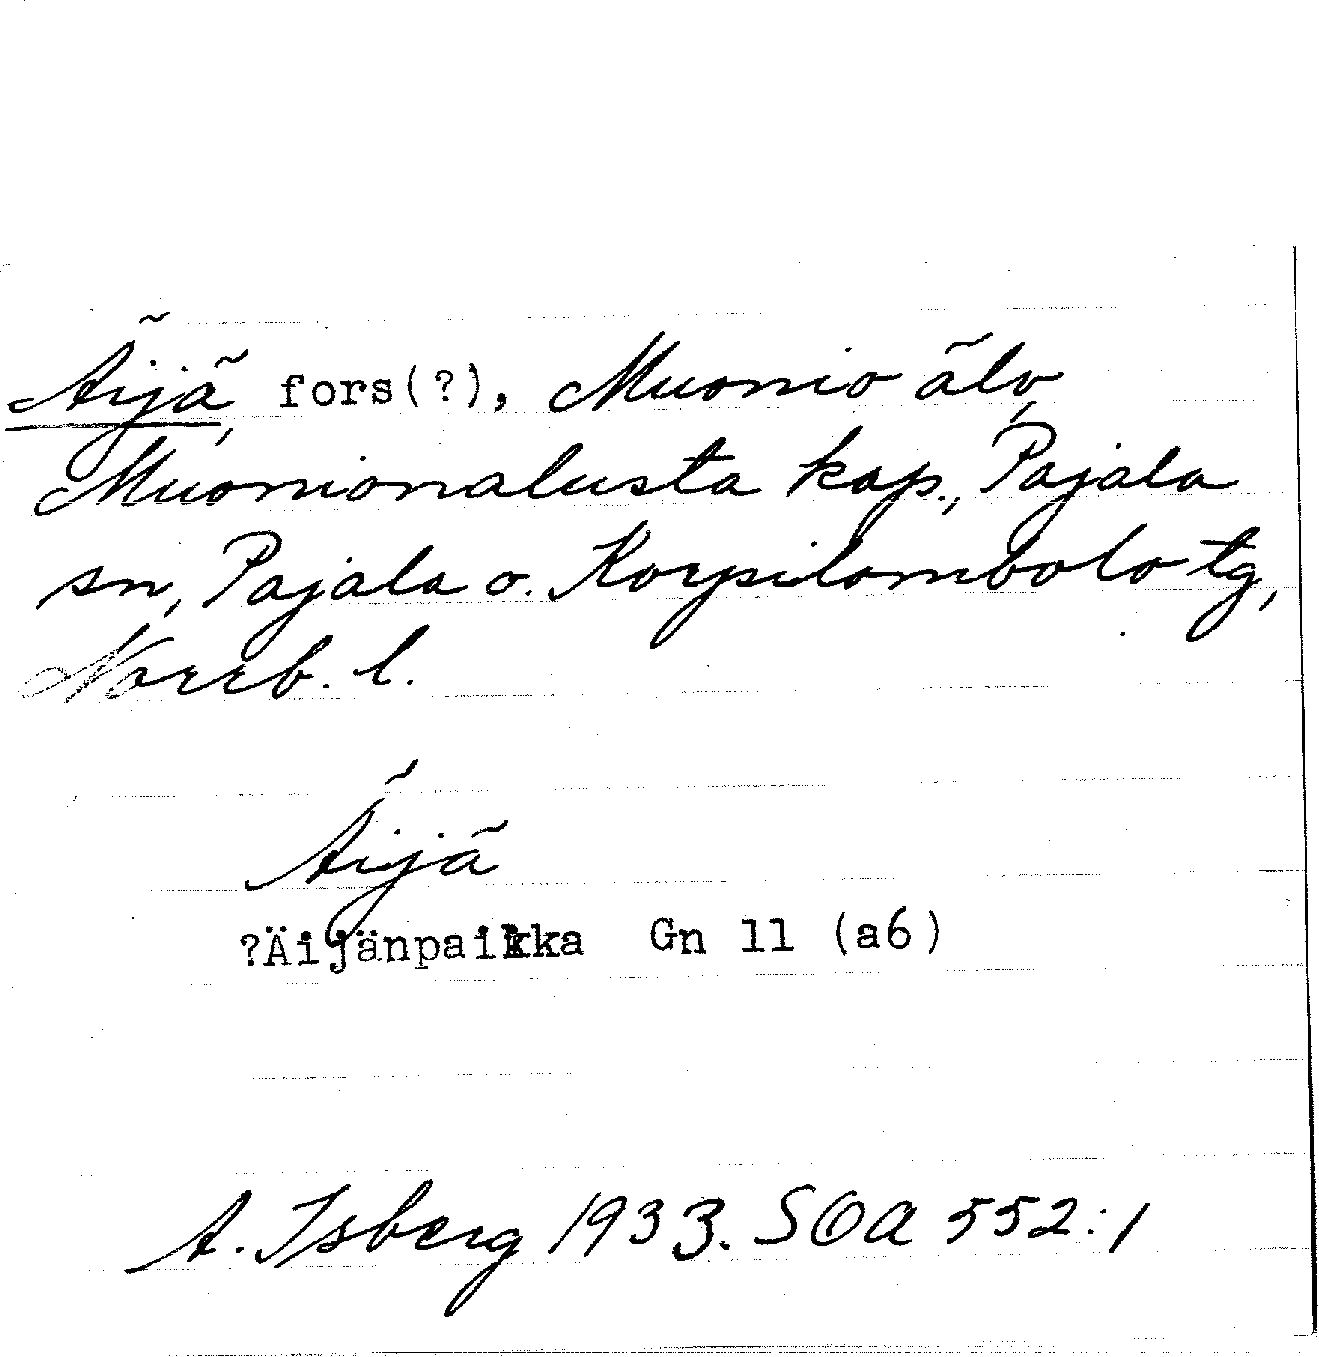 Äijä, fors(?), Muonio älv,
Muonionalusta kap., Pajala
sn, Pajala o. Korpilombolo tg,
Norrb. l.
Äijä
?Äijänpaikka Gn 11 (a6)
A. Isberg 1933. SOA 552:1